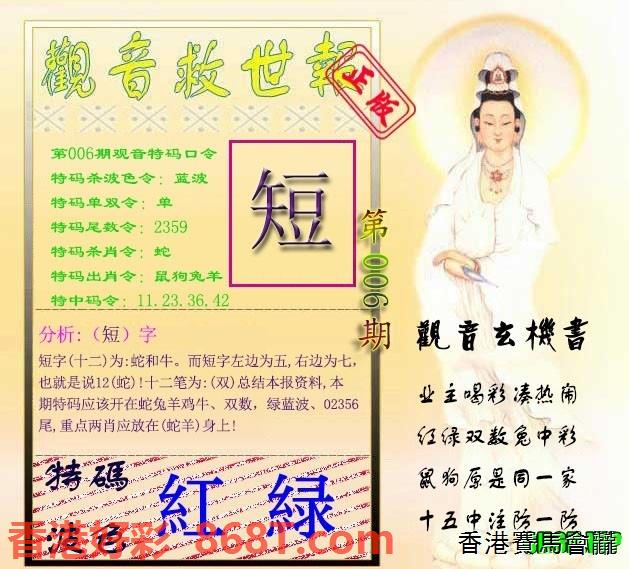 觀音救世報
正版
第006期观音特码口令
特码杀波色令：蓝波
特码单双令：单
特码尾数令：2359
特码杀肖令：蛇
特码出肖令：鼠狗兔羊
特中码令：11.23.36.42
短
第006期
分析:（短）字
短字(十二)为:蛇和牛。而短字左边为五,右边为七,
也就是说12(蛇)!十二笔为:(双)总结本报资料,本
期特码应该开在蛇兔羊鸡牛、双数，绿蓝波、02356
尾,重点两肖应放在(蛇羊)身上!
特碼
波色
紅 绿
觀音玄機書
业主喝彩凑热闹
红绿双数兔中彩
鼠狗原是同一家
十五中注防一防
香港好彩 868T.com
香港賽馬會